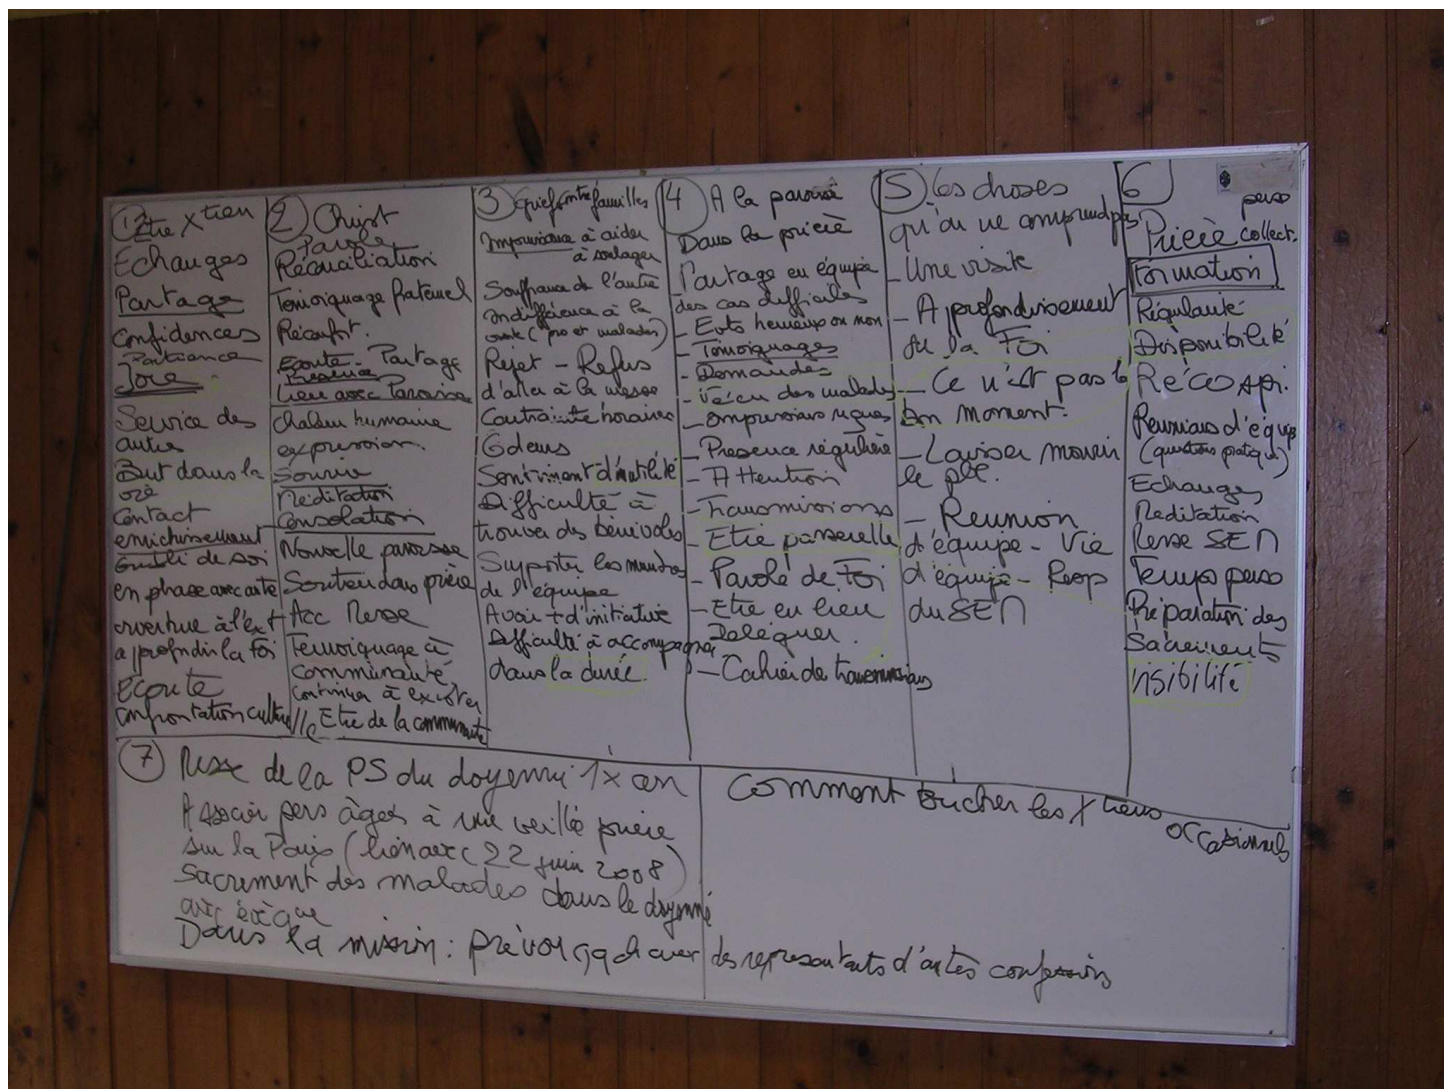 1 Etre Xtien
Echanges
Partage
Confidences
Patience
Joie
Service des
autres
But dans la
vie
Contact
enrichissement
Oubli de soi
en phase avec
ouverture à l'ext
approfondir la Foi
Ecoute
Confrontation
2 Christ
Parole
Réconciliation
Temoignage fraternel
Réconfort.
Ecoute - Partage
Présence
Lien avec Paroisse
chaleur humaine
expression.
Sourire
Méditation
Consolation
Nouvelle paroisse
Soutien dans prière
Acc Messe
Temoignage à
Communauté
Continuer à exister
Etre de la communauté
3 familles
Impuissance à aider
à soulager
Souffrance de l'autre
indifférence à la
(pro et malades)
Rejet - Refus
d'aller à la messe
Contrainte horaires
Odeurs
Sentiment d'inutilité
Difficulté à
trouver des bénévoles
Supporter les
de l'équipe
Avoir + d'initiative
Difficulté à accompagner
dans la durée.
4 A la paroisse
Dans la prière
Partage en équipe
des cas difficiles
- Evts heureux ou non
- Témoignages
- Demandes
- Vécu des malades
- impressions reçues
- Presence régulière
- Attention
- Transmissions
- Etre passerelle
- Parole de Foi
- Etre en lien
Déléguer.
- Cahier de transmissions
5 les choses
qu'on ne comprend pas
- Une visite
- Approfondissement
de la Foi
- Ce n'est pas le
bon moment.
- Laisser mourir
le
- Reunion
d'équipe - Vie
d'équipe - Resp
du SEM
6
perso
Prière collect.
Formation
Régularité
Disponibilité
Récos spi.
Reunions d'équipe
(questions pratiques)
Echanges
Meditation
Messe SEM
Temps perso
Préparation des
Sacrements
7 Messe de la PS du doyenné 1x an
Associer pers âgées à une veillée prière
sur la Paix (lien avec 22 juin 2008)
Sacrement des malades dans le doyenné
avec évêque
Dans la mission : prévoir qq ch avec des représentants d'autres confessions
Comment toucher les Xtiens
occasionnels